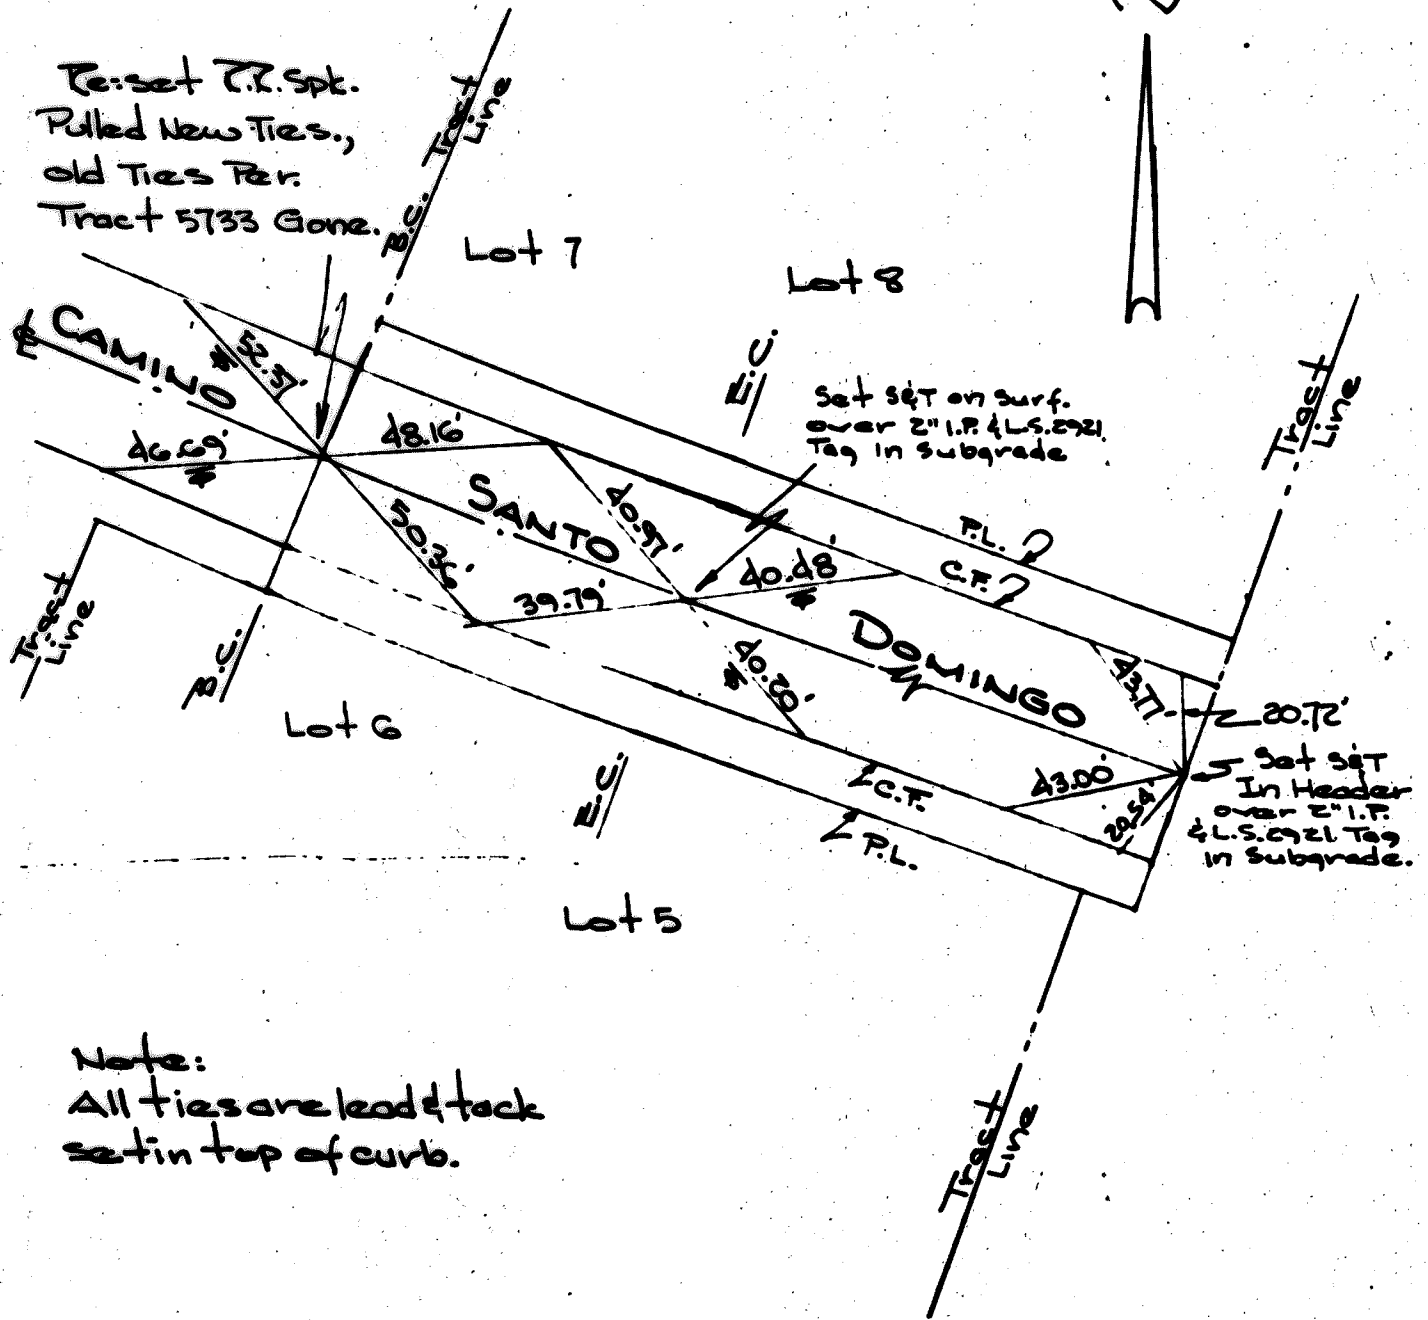 Re-set R.R. Spk.
Pulled New Ties.,
old Ties Per.
Tract 5733 Gone.
Tract
Line
B.C.
Lot 7
Lot 8
℄ CAMINO
52.37'
46.69'
48.16'
E.C.
Set S&T on Surf.
over 2" I.P. & L.S. 2921
Tag in Subgrade
Tract
Line
SANTO
40.97'
50.36'
39.79'
40.48'
P.L.
C.F.
Tract
Line
B.C.
DOMINGO
40.20'
43.77'
20.72'
Lot 6
E.C.
C.F.
P.L.
43.00'
20.54'
Set S&T
In Header
over 2" I.P.
& L.S. 2921 Tag
in Subgrade.
Lot 5
Note:
All ties are lead & tack
set in top of curb.
Tract
Line